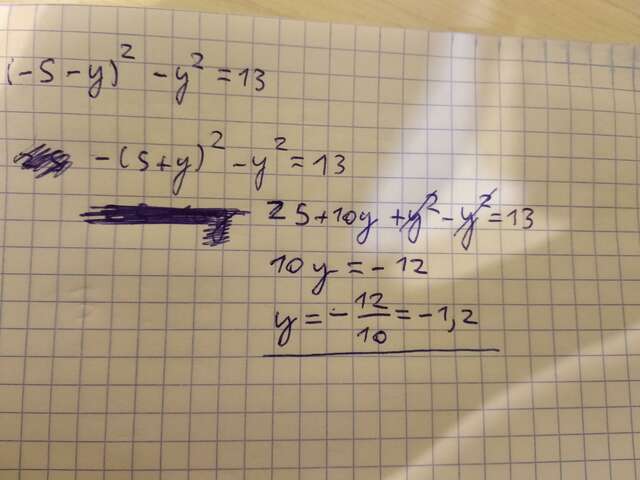 (-5-y)² -y² = 13
-(5+y)² -y² = 13
25+10y +y² -y² = 13
10y = -12
y = - 12/10 = -1,2